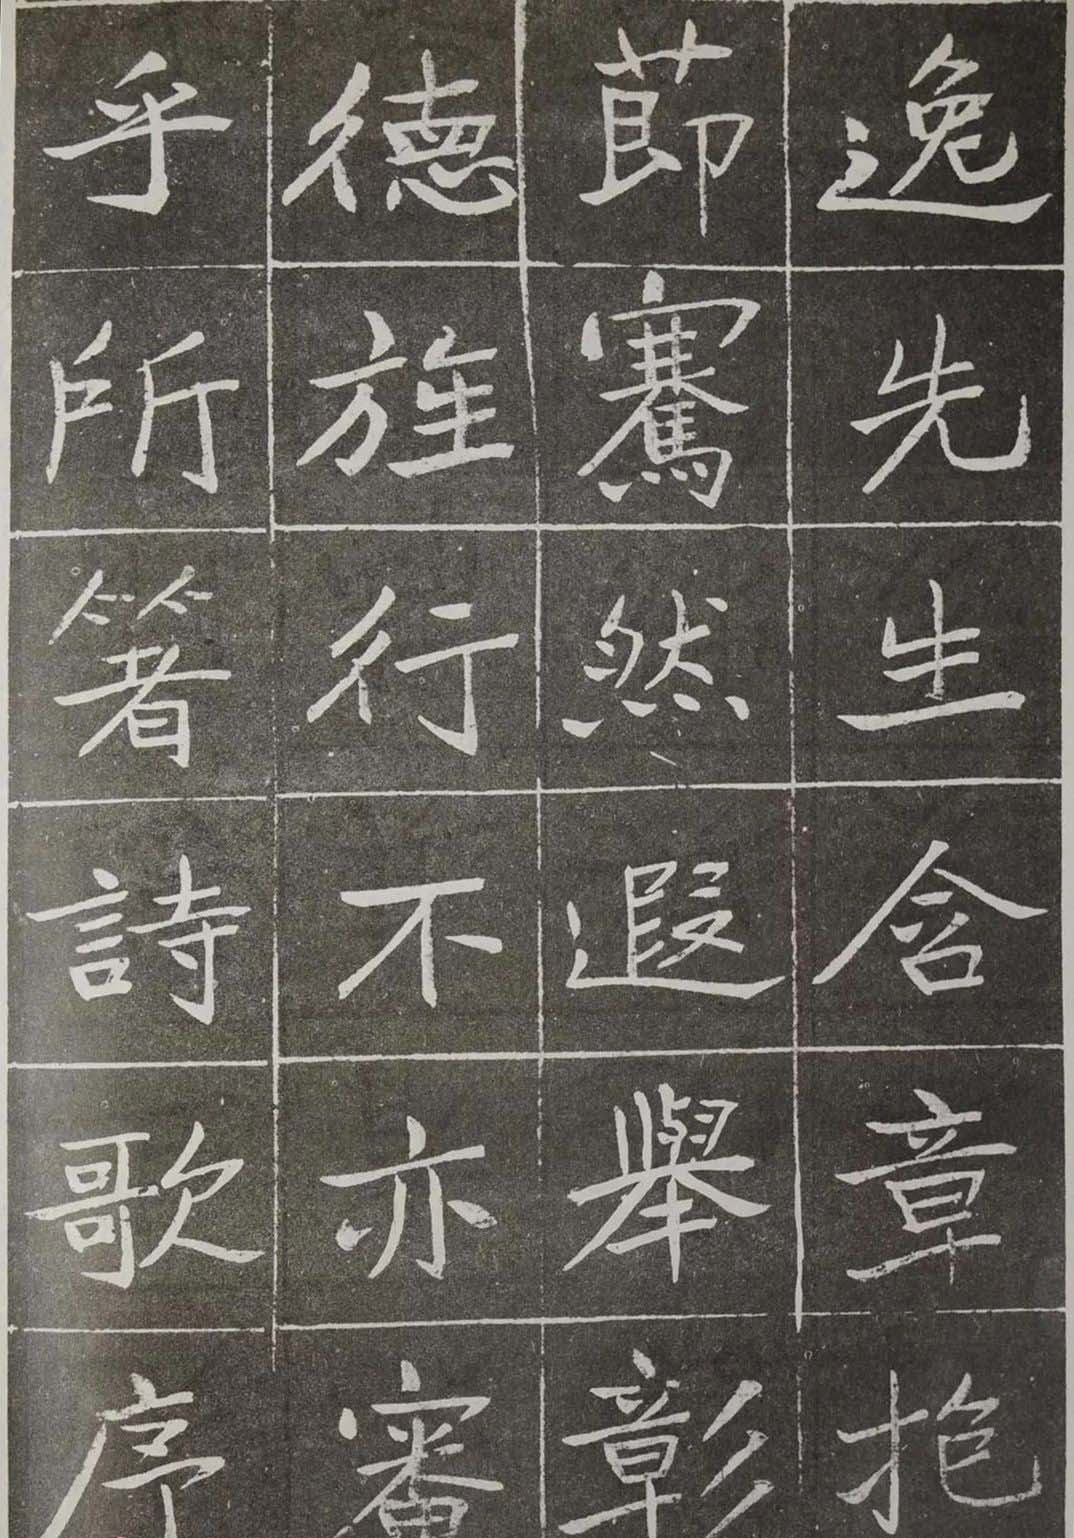 逸先生含章抱
莭騫然遐舉彰
德旌行不亦審
乎所箸詩歌序